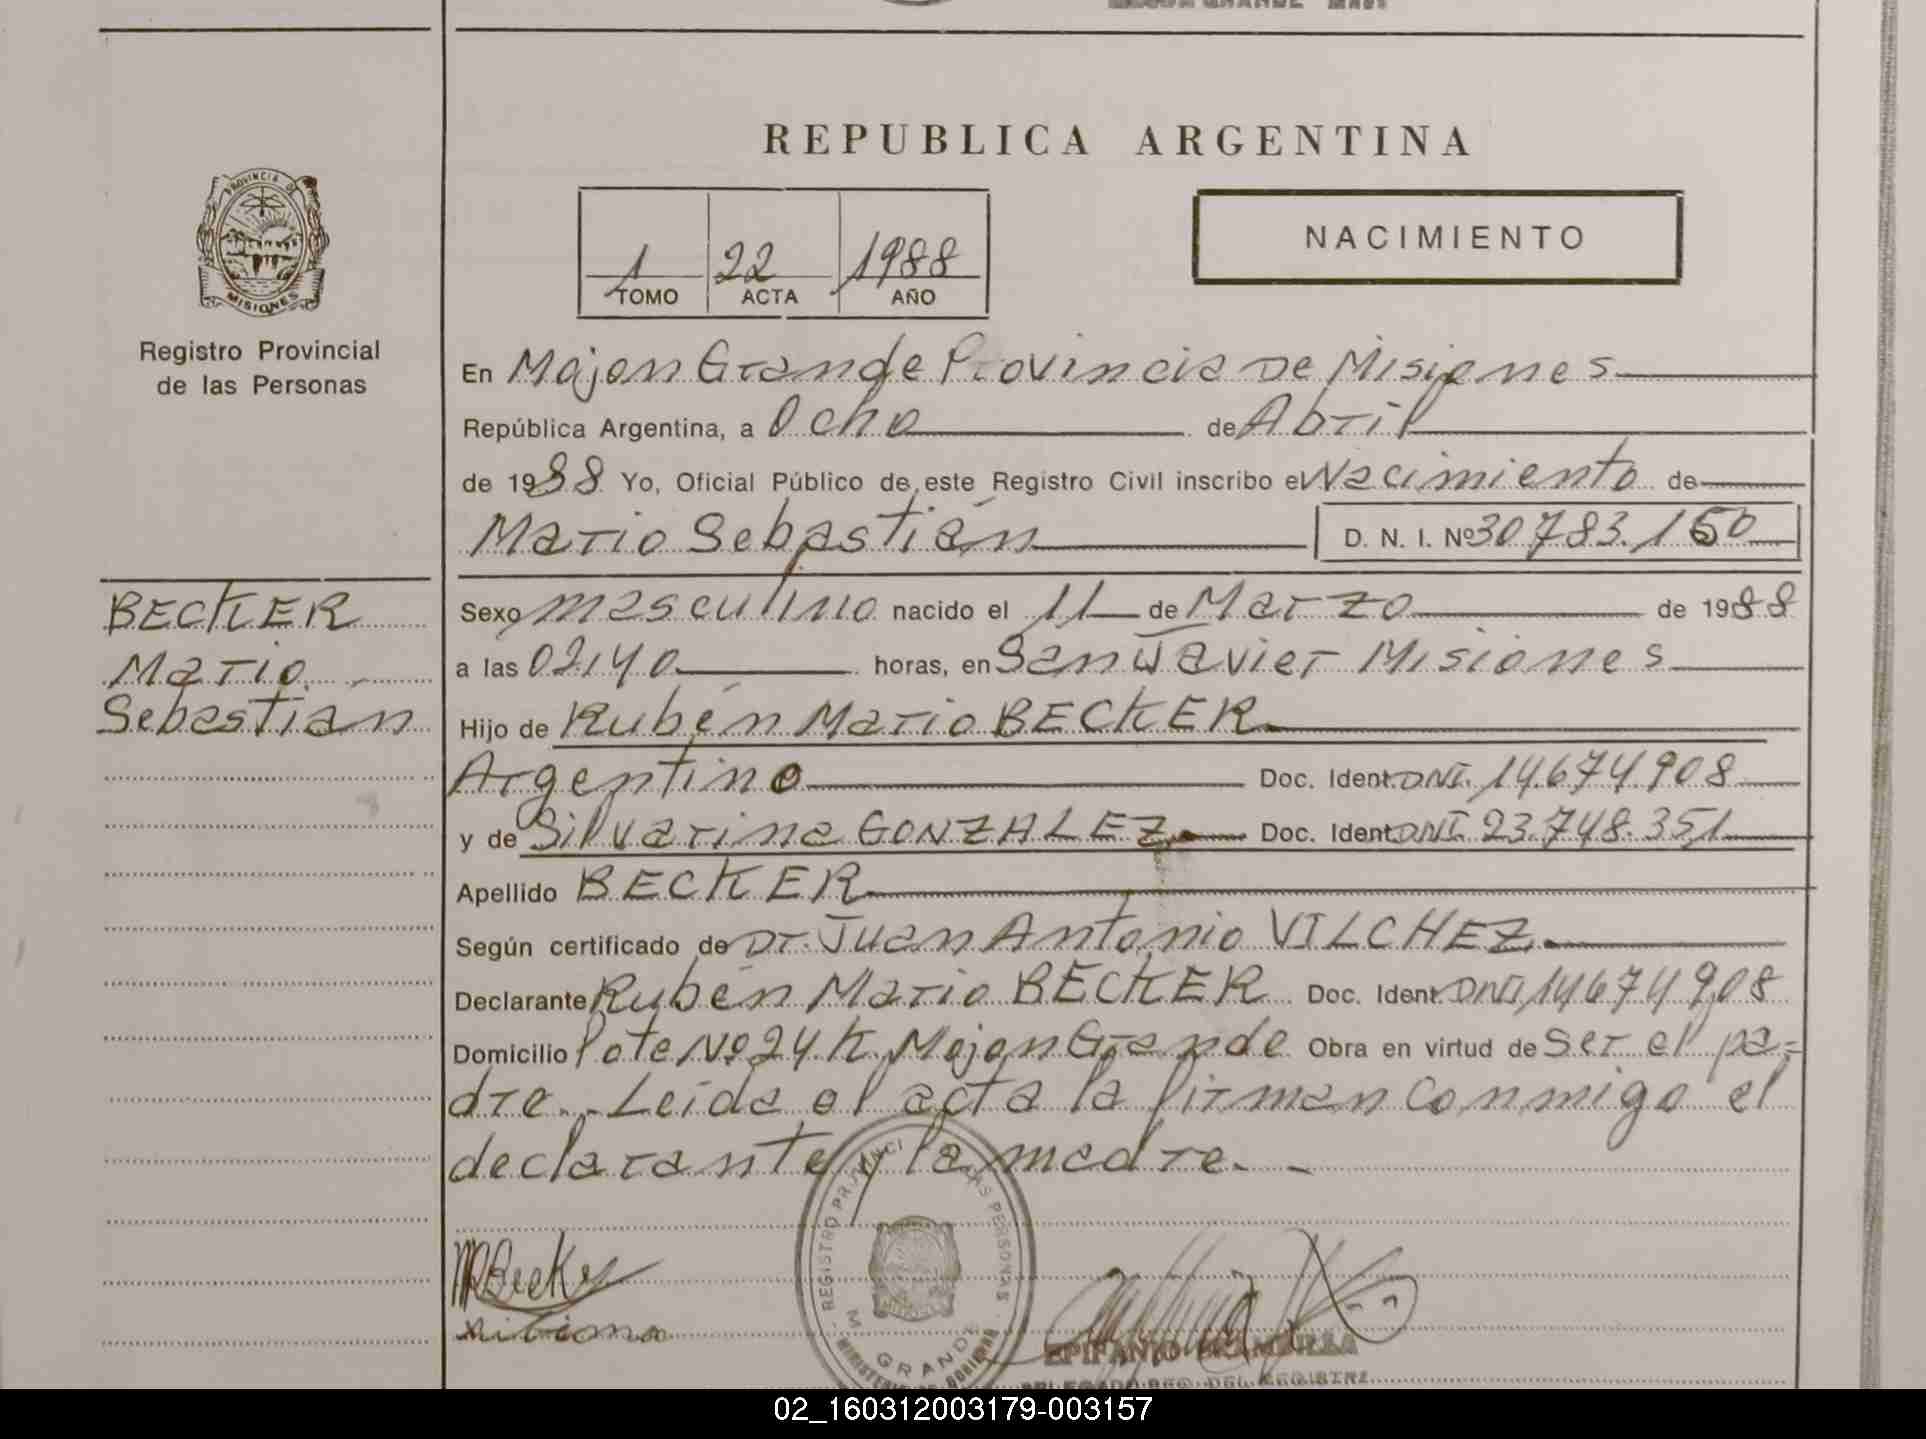 REPUBLICA ARGENTINA
PROVINCIA DE
MISIONES
Registro Provincial
de las Personas
1 22 1988
TOMO ACTA AÑO
NACIMIENTO
En Mojon Grande Provincia De Misiones
República Argentina, a Ocho de Abril
de 1988 Yo, Oficial Público de este Registro Civil inscribo el Nacimiento de
Mario Sebastián D. N. I. Nº 30.783.150
BECKER
Mario
Sebastian
Sexo masculino nacido el 11 de Marzo de 1988
a las 02,40 horas, en San Javier Misiones
Hijo de Rubén Mario BECKER
Argentino Doc. Ident. DNI. 14.674.908
y de Silvarina GONZALEZ Doc. Ident. DNI 23.748.351
Apellido BECKER
Según certificado de Dr. Juan Antonio VILCHEZ.
Declarante Rubén Mario BECKER Doc. Ident. DNI 14674908
Domicilio lote Nº 24 K. Mojon Grande Obra en virtud de Ser el pa=
dre.. Leída el acta la firman conmigo el
declarante y la madre. -
REGISTRO PROVINCI AS PERSONAS
GRANDE
MRBecker
EPIFANIO
DELEGADO REG. DEL REGISTRO
02_160312003179-003157